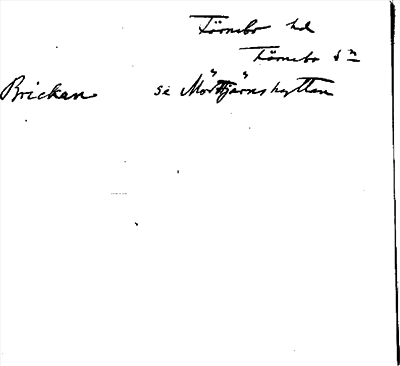 Färnebo hd
Färnebo sn
Brickan se Mörttjärnshyttan